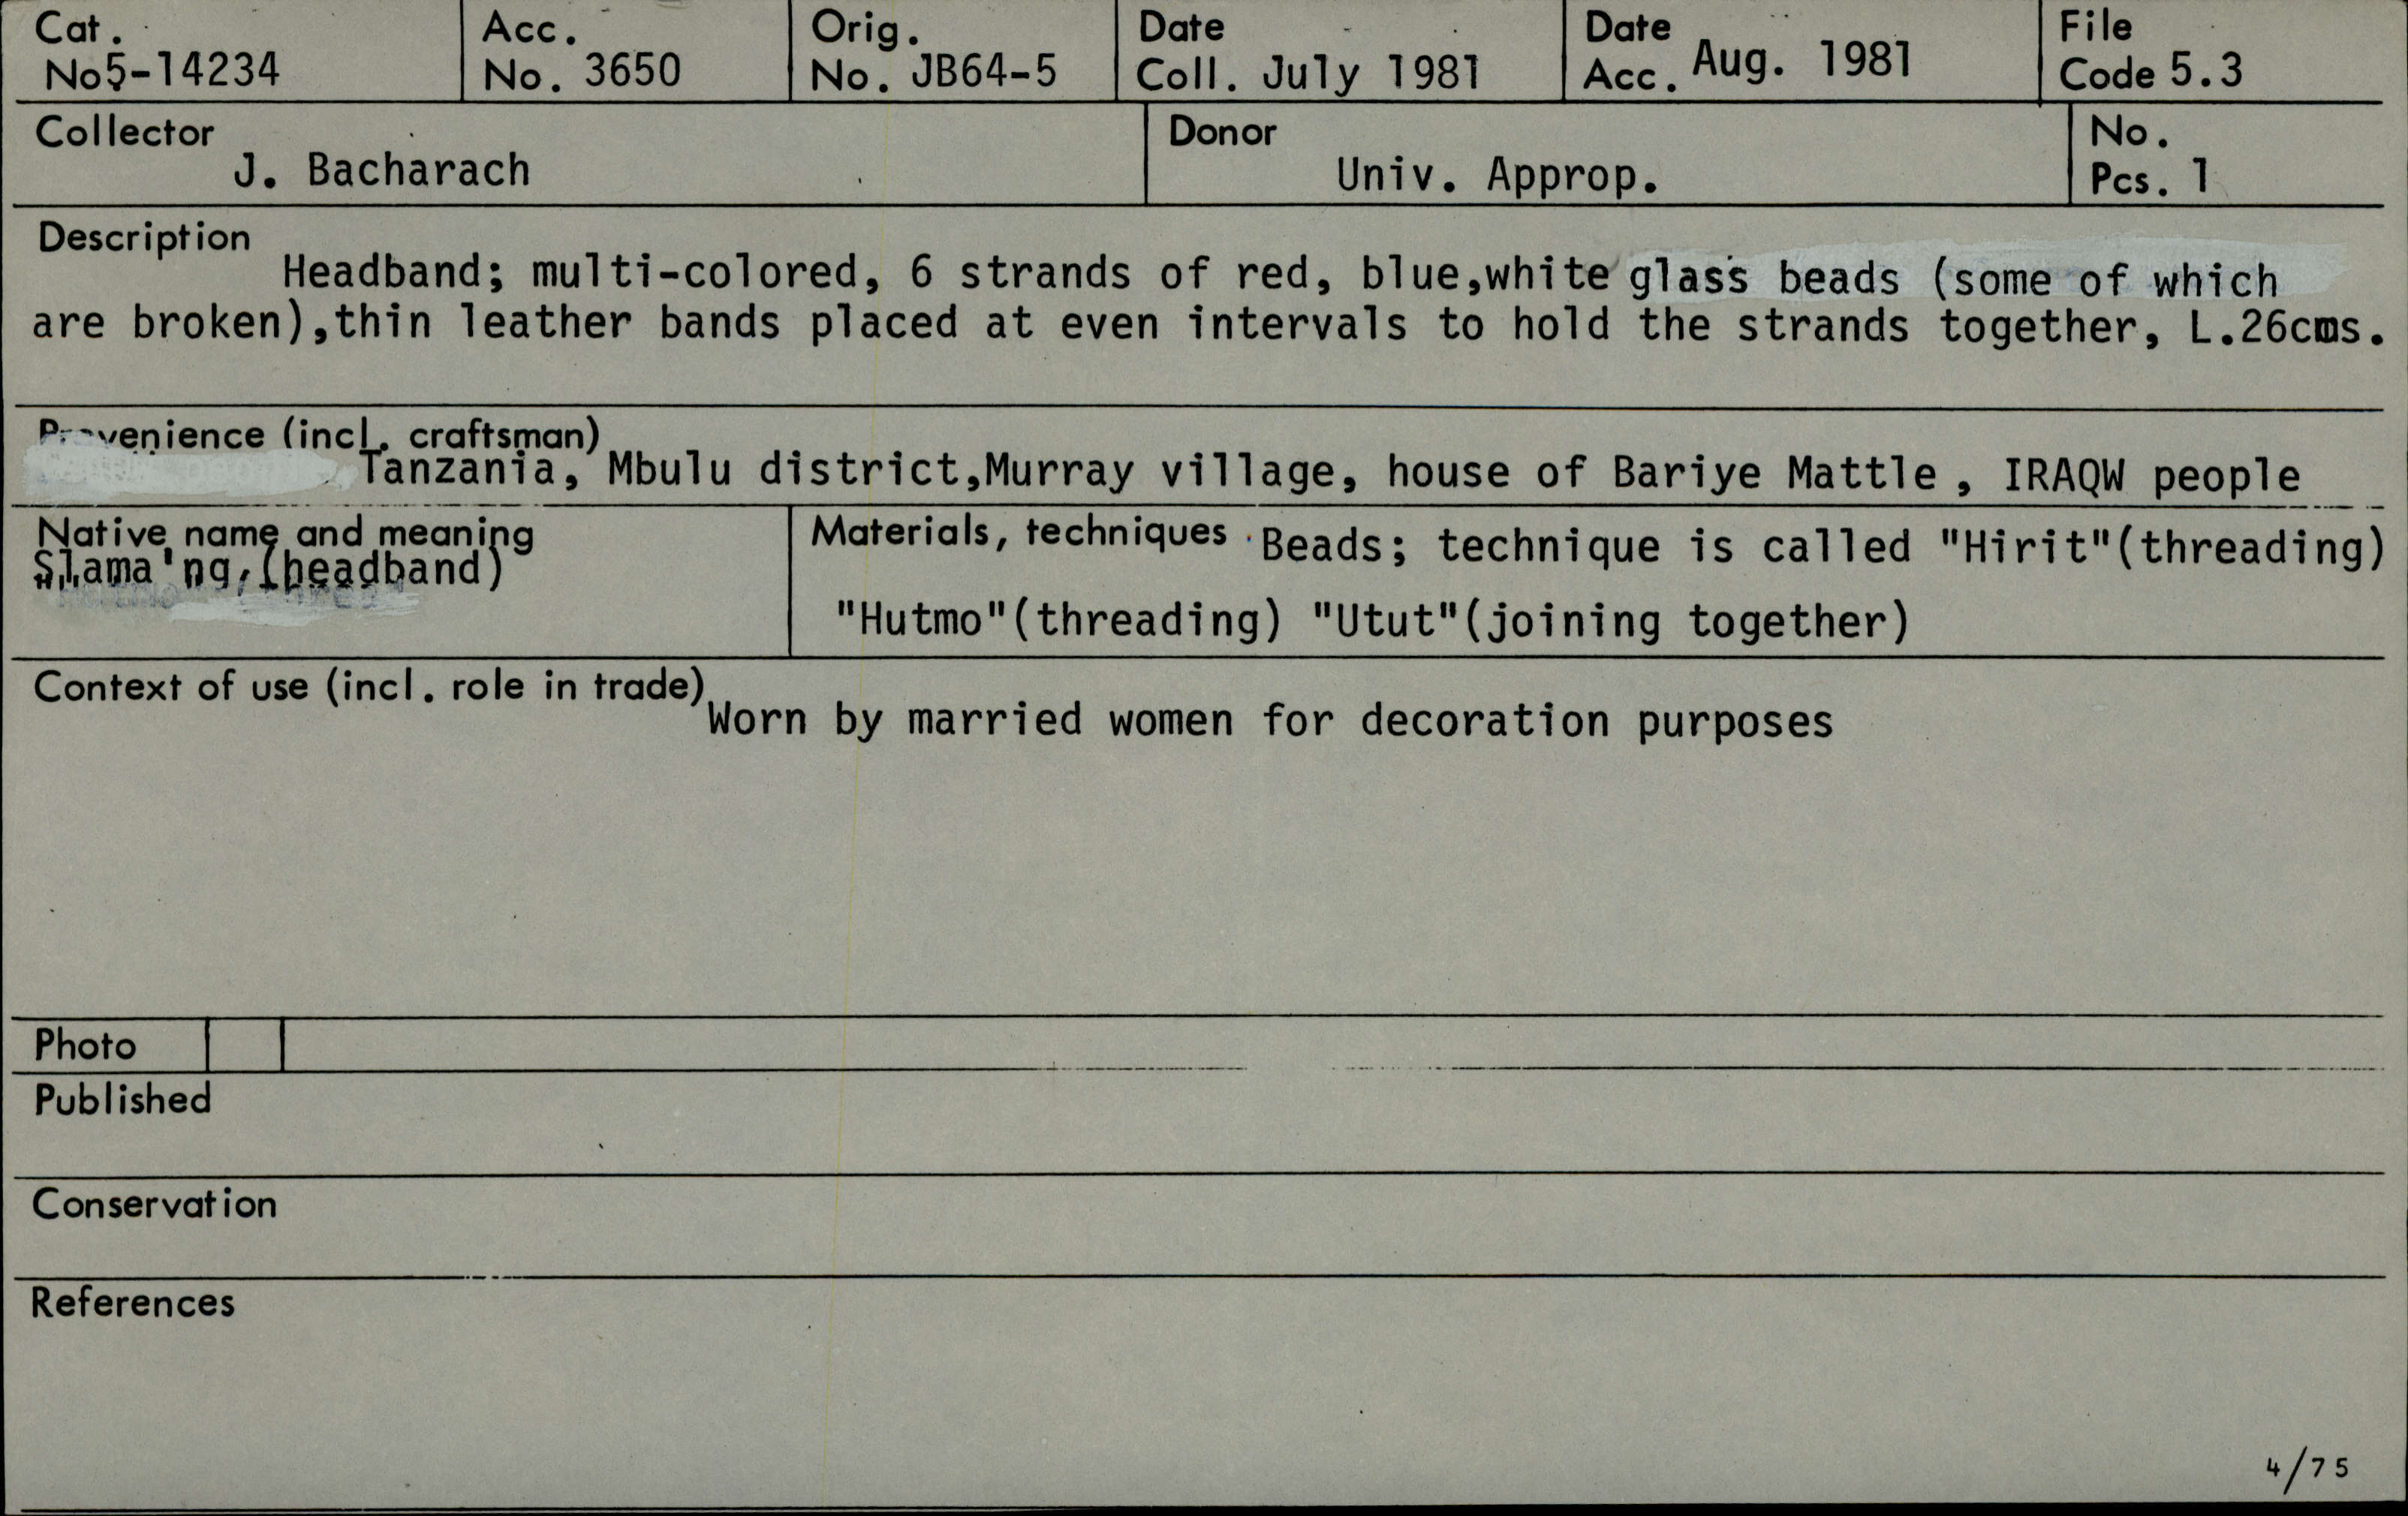 Cat. No5-14234
Acc. No. 3650
Orig. No. JB64-5
Date Coll. July 1981
Date Acc. Aug. 1981
File Code 5.3
Collector
J. Bacharach
Donor
Univ. Approp.
No. Pcs. 1
Description
Headband; multi-colored, 6 strands of red, blue,white glass beads (some of which
are broken),thin leather bands placed at even intervals to hold the strands together, L.26cms.
Provenience (incl. craftsman)
Tanzania, Mbulu district,Murray village, house of Bariye Mattle , IRAQW people
Native name and meaning
Slama'ng,(headband)
Materials, techniques Beads; technique is called "Hirit"(threading)
"Hutmo"(threading) "Utut"(joining together)
Context of use (incl. role in trade)
Worn by married women for decoration purposes
Photo
Published
Conservation
References
4/75